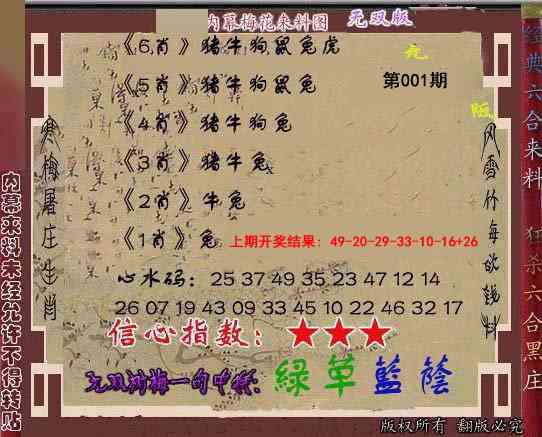 内幕梅花来料图 无双版
《6肖》猪牛狗鼠兔虎
《5肖》猪牛狗鼠兔
第001期
《4肖》猪牛狗兔
《3肖》猪牛兔
《2肖》牛兔
《1肖》兔 上期开奖结果：49-20-29-33-10-16+26
心水码：25 37 49 35 23 47 12 14
26 07 19 43 09 33 45 10 22 46 32 17
信心指数：★★★
綠草藍蔭
版权所有 翻版必究
内幕来料未经允许不得转贴
寒梅屠庄生肖
经典六合来料 狂杀六合黑庄